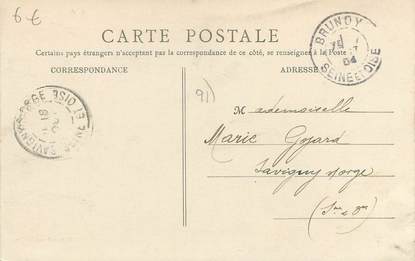 6 €
CARTE POSTALE
Certains pays étrangers n'acceptant par la correspondance de ce côté, se renseignes à la Poste
CORRESPONDANCE
ADRESSE
BRUNOY
04
SEINE ET OISE
91)
SEINE ET OISE
Mademoiselle
Marie Gojard
Savigny s/orge
(Sne & Oe)